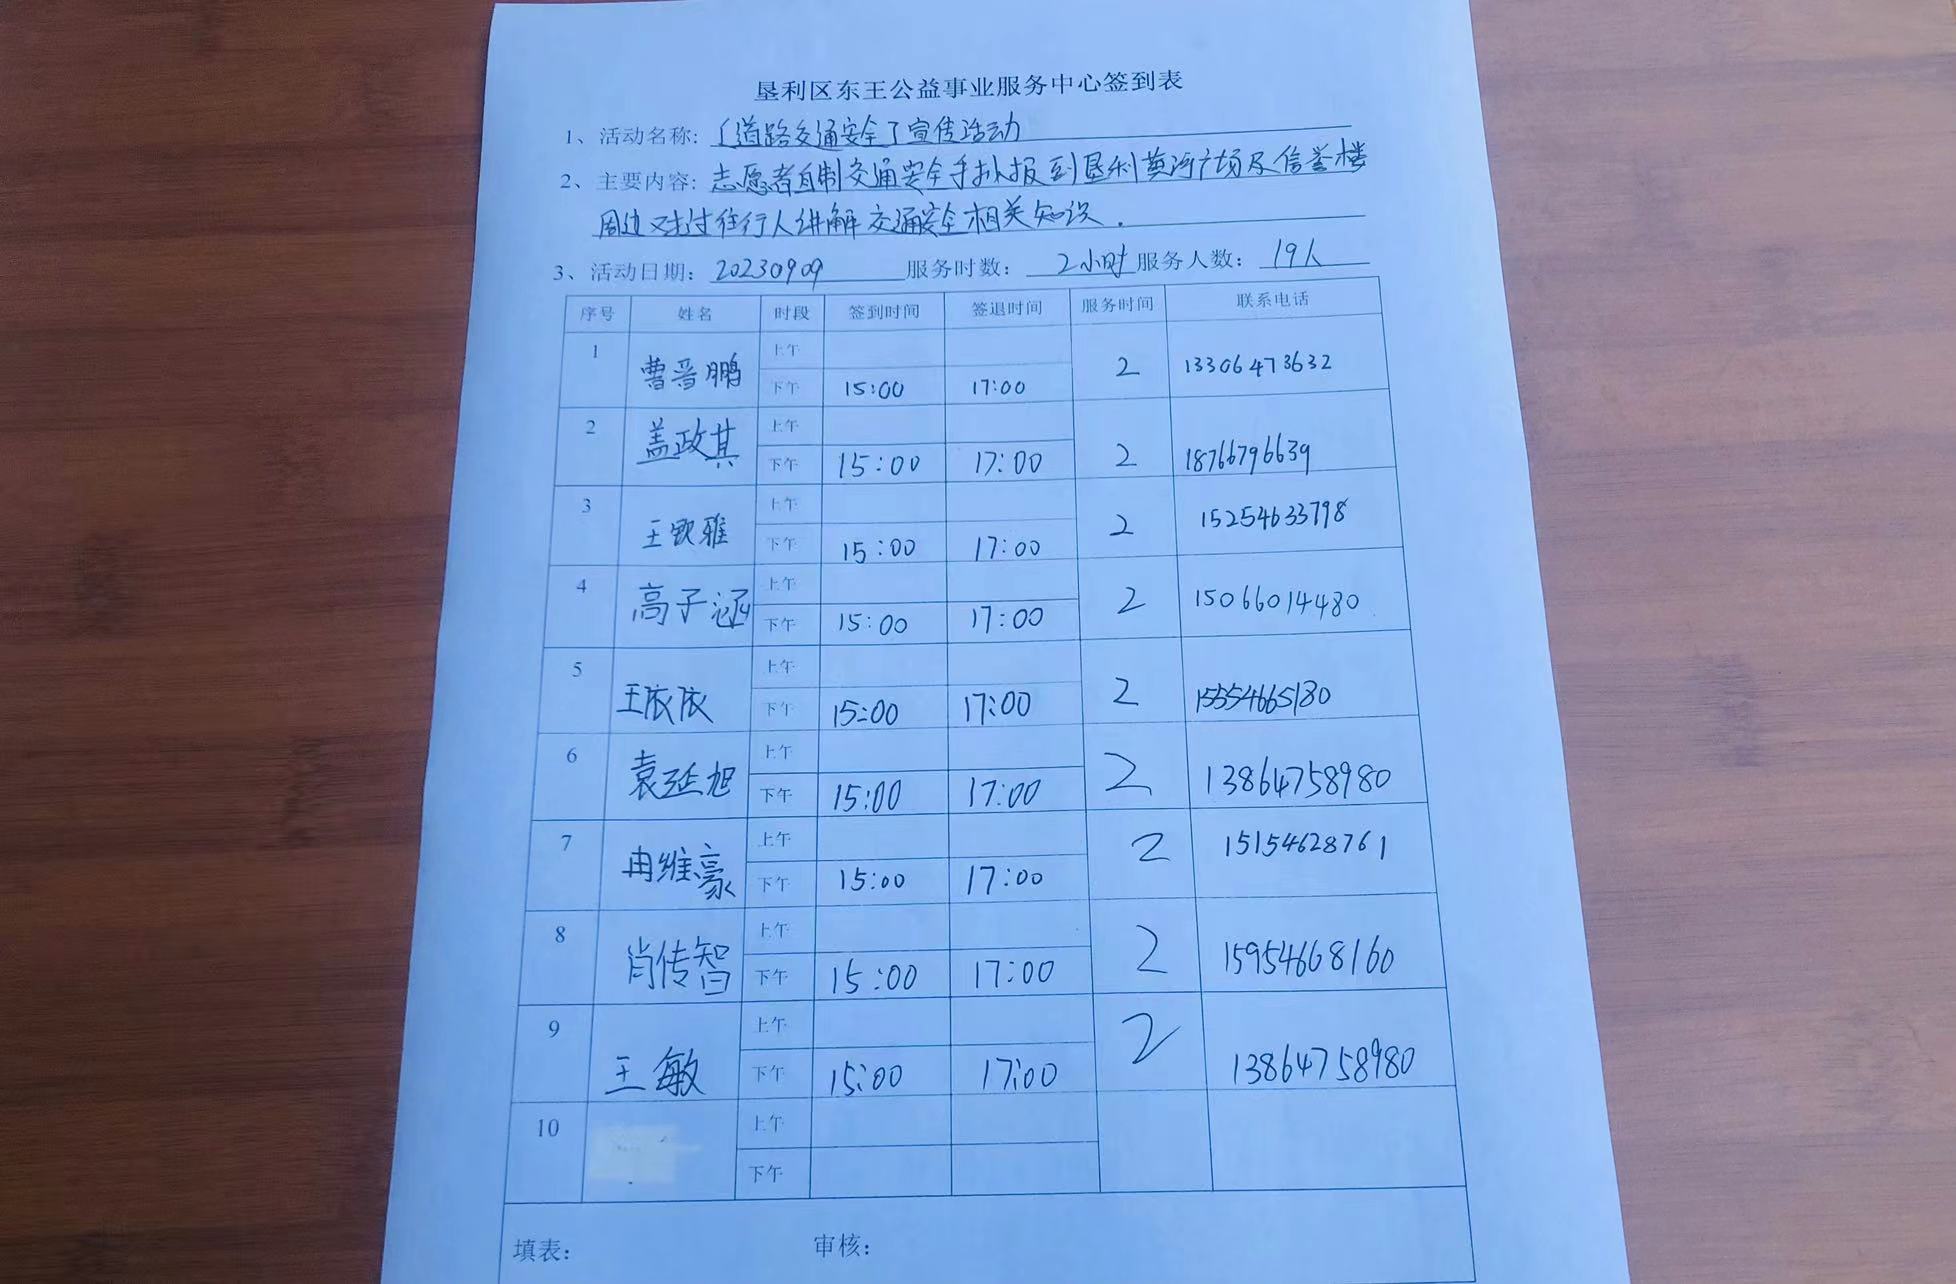 垦利区东王公益事业服务中心签到表
1、活动名称: 「道路交通安全」宣传活动
2、主要内容: 志愿者自制交通安全手抄报到垦利黄河广场及信誉楼
周边对过往行人讲解交通安全相关知识.
3、活动日期: 20230909 服务时数: 2小时 服务人数: 19人
序号 姓名 时段 签到时间 签退时间 服务时间 联系电话
1 曹晋鹏 上午 2 13306473632
下午 15:00 17:00
2 盖政其 上午
下午 15:00 17:00 2 18766796639
3 王歆雅 上午 2 15254633798
下午 15:00 17:00
4 高子涵 上午 2 15066014480
下午 15:00 17:00
5 王依依 上午 2 15554665180
下午 15:00 17:00
6 袁延旭 上午 2 13864758980
下午 15:00 17:00
7 冉维豪 上午 2 15154628761
下午 15:00 17:00
8 肖传智 上午 2 15954668160
下午 15:00 17:00
9 王敏 上午 2 13864758980
下午 15:00 17:00
10 上午
下午
填表: 审核: